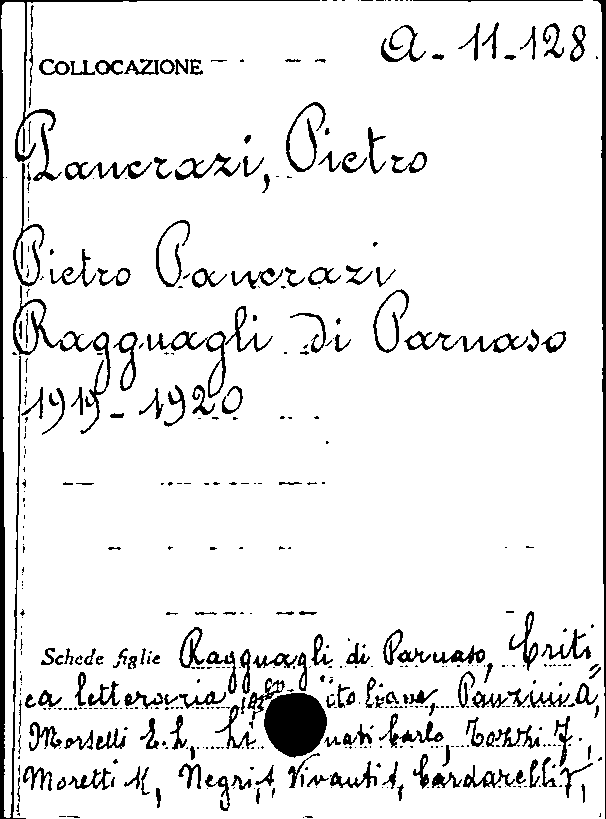 A-11-128
COLLOCAZIONE
Pancrazi, Pietro
Pietro Pancrazi
Ragguagli di Parnaso
1919-1920
Schede figlie Ragguagli di Parnaso, Criti
ca letteraria italiana, Panzini A,
Morselli E. L, nati Carlo, Tozzi F.,
Moretti M, Negri A, Vivanti A, Cardarelli V,